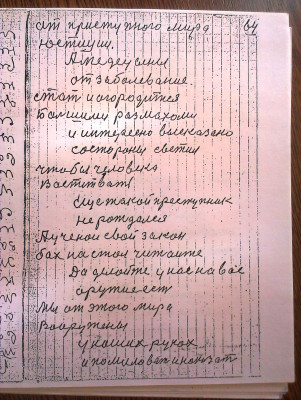 от приступного мира 64
юстиции.
А медецины
от заболевание
стат и огородится
Большими размахоми
и интересно высказано
состороны светил
чтобы человека
Воститвать
не рождался
А ученои свой закон
бах на стол читайте
Да делайте у нас на вас
оружие ест
Мы от этого мира
Вооружены
у наших руках
и помиловат и наказат